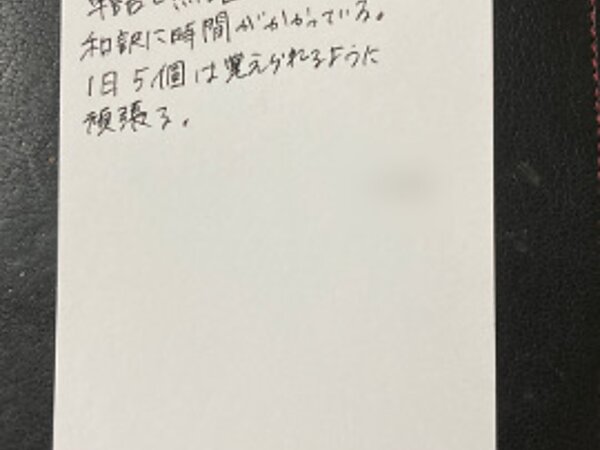 和訳に時間がかかっている。
1日5個は覚えられるように
頑張る。